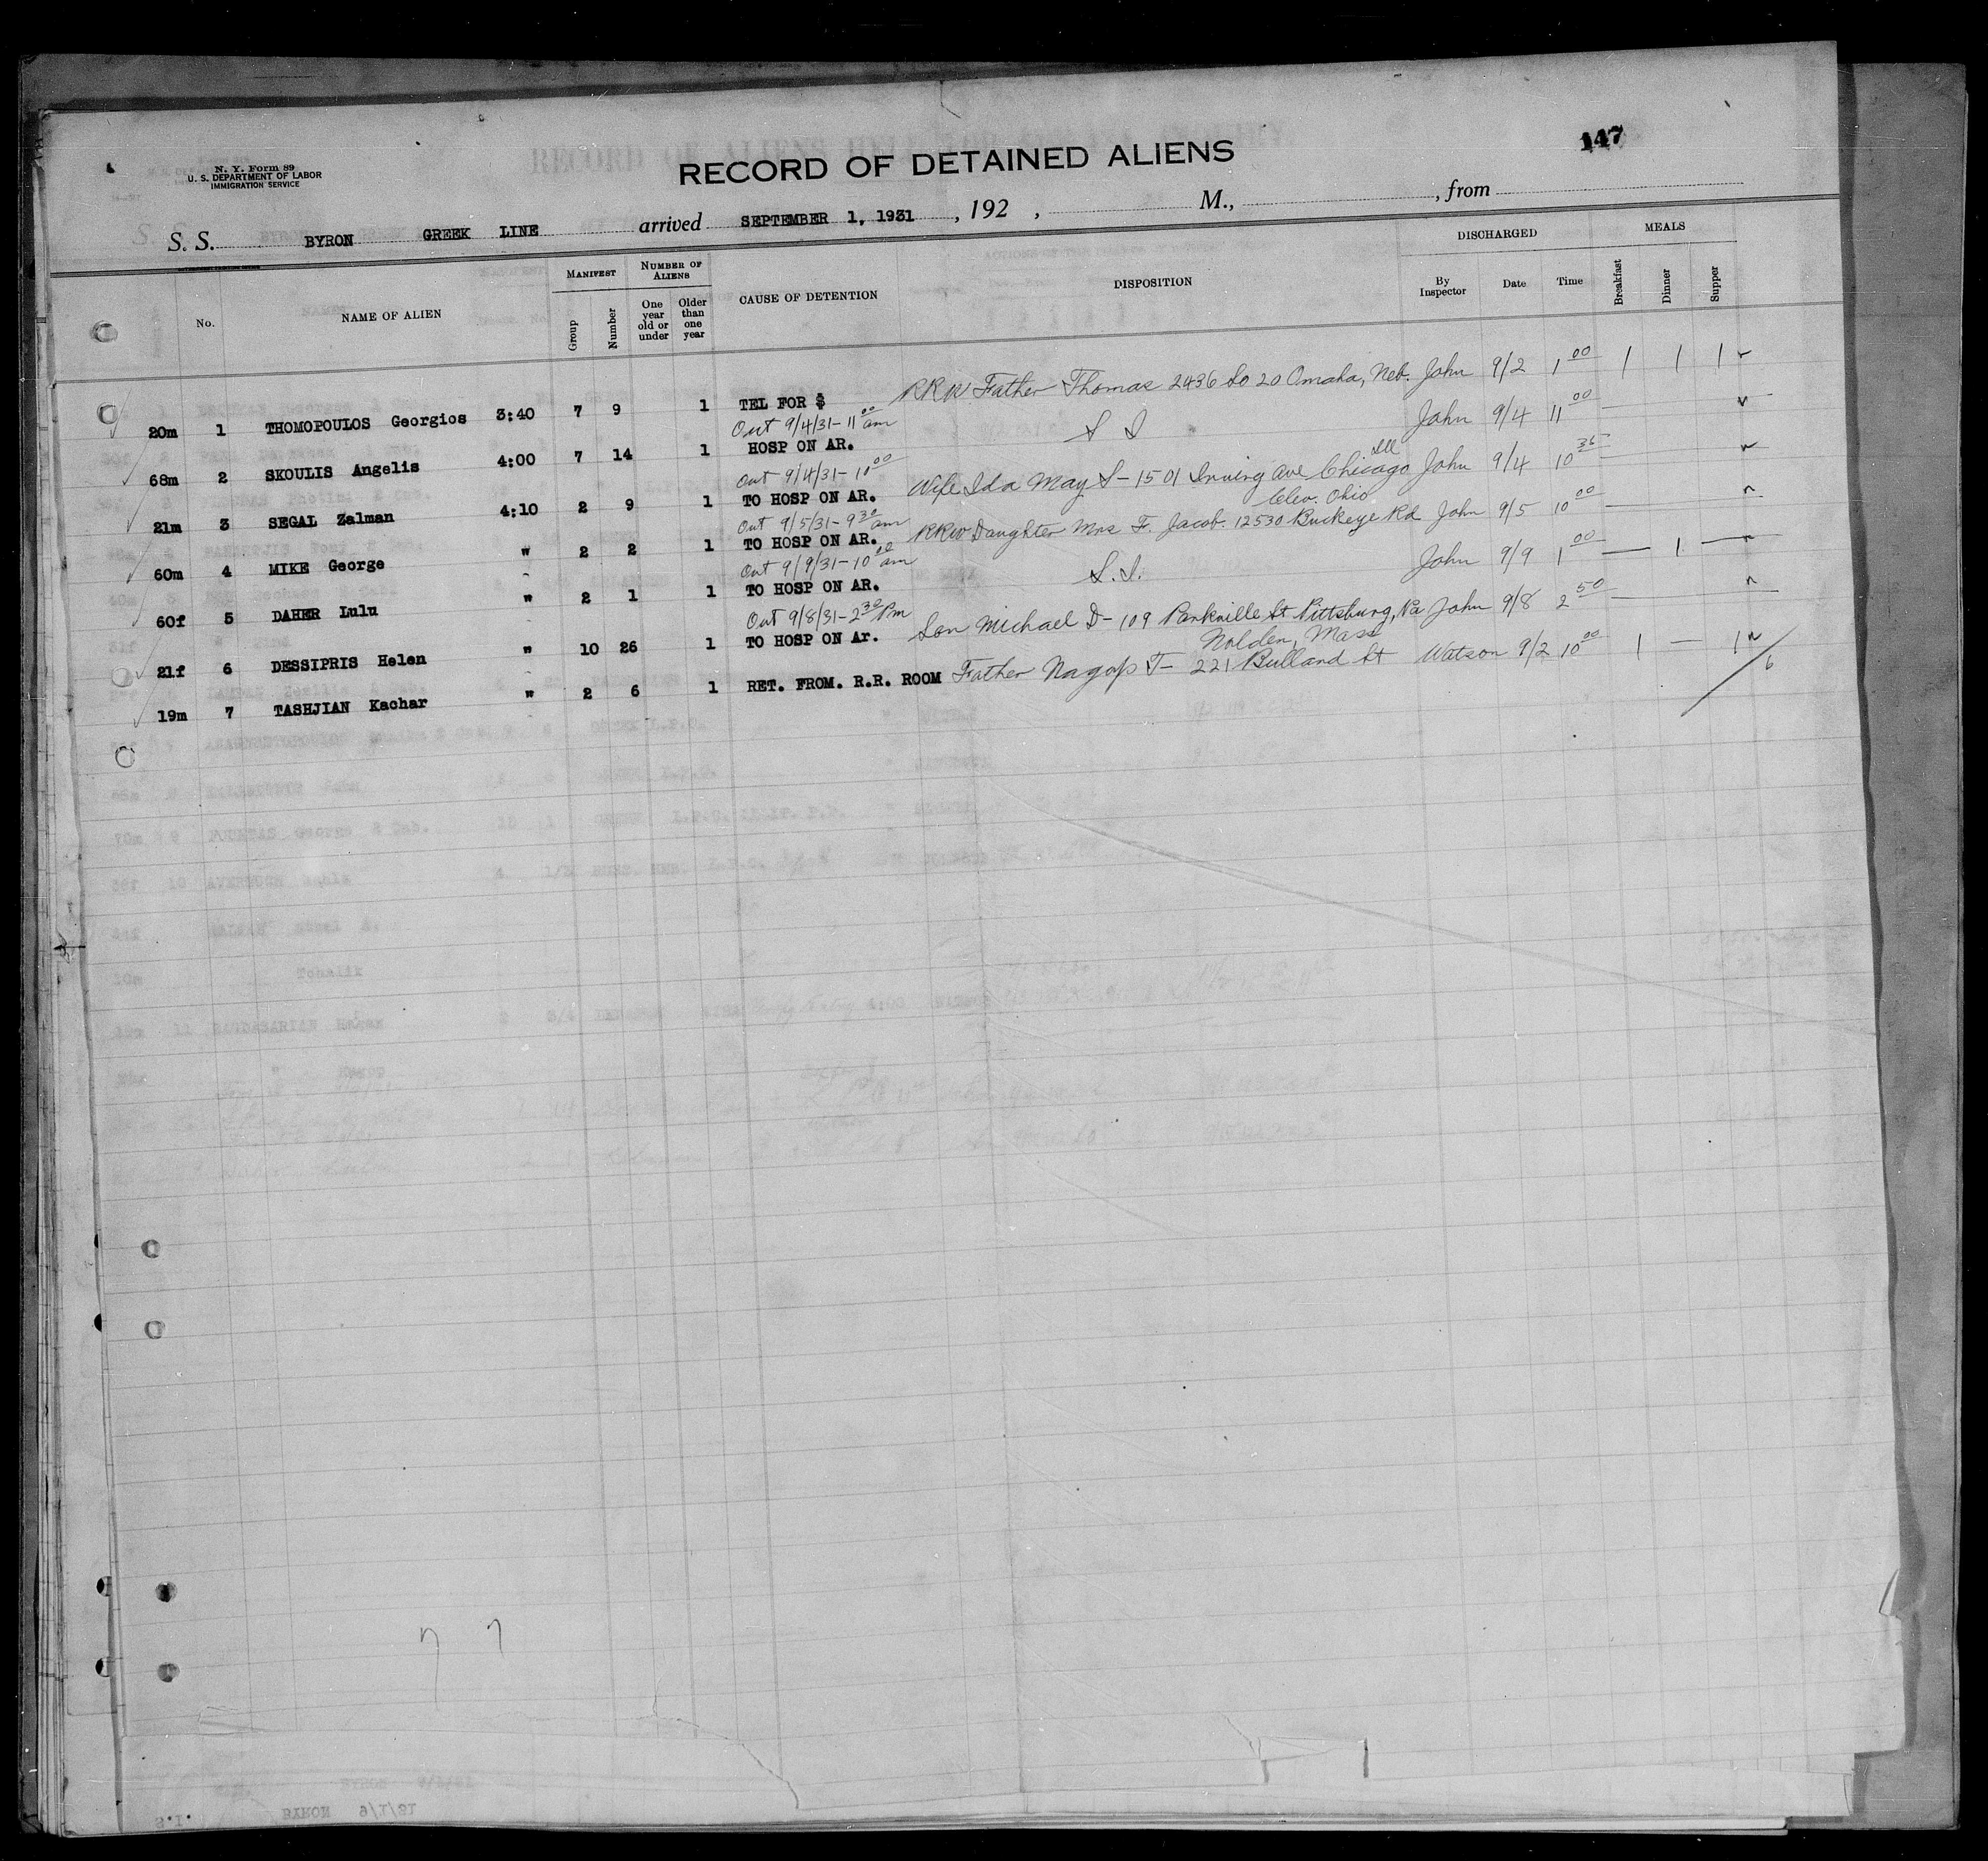 147
N. Y. Form 89
U. S. DEPARTMENT OF LABOR
IMMIGRATION SERVICE
RECORD OF DETAINED ALIENS
S. S. BYRON GREEK LINE arrived SEPTEMBER 1, 1931, 192 , M., , from
No. NAME OF ALIEN MANIFEST Group Number NUMBER OF ALIENS One year old or under Older than one year CAUSE OF DETENTION DISPOSITION DISCHARGED By Inspector Date Time MEALS Breakfast Dinner Supper
20m 1 THOMOPOULOS Georgios 3:40 7 9 1 TEL FOR $ RRW Father Thomas 2436 So 20 Omaha, Neb. John 9/2 1 00 1 1 1
Out 9/4/31 - 11 00 am
68m 2 SKOULIS Angelis 4:00 7 14 1 HOSP ON AR. S I John 9/4 11 00
Out 9/4/31 - 10 00
Ill
21m 3 SEGAL Zalman 4:10 2 9 1 TO HOSP ON AR. Wife Ida May S - 1501 Irving Ave Chicago John 9/4 10 35
Out 9/5/31 - 9 30 am
Clev. Ohio
60m 4 MIKE George " 2 2 1 TO HOSP ON AR. RRW Daughter Mrs F. Jacob. 12530 Buckeye Rd John 9/5 10 00
Out 9/9/31 - 10 00 am
60f 5 DAHER Lulu " 2 1 1 TO HOSP ON AR. S.I. John 9/9 1 00 1
Out 9/8/31 - 2 30 Pm
21f 6 DESSIPRIS Helen " 10 26 1 TO HOSP ON Ar. Son Michael D - 109 Parkville St Pittsburg, Pa John 9/8 2 50
Mass
19m 7 TASHJIAN Kachar " 2 6 1 RET. FROM. R.R. ROOM Father T - 221 St Watson 9/2 10 00 1 1
6
BYRON